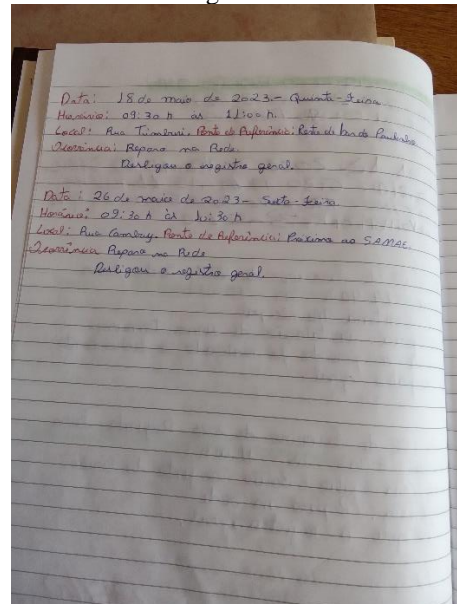 Data: 18 de maio de 2023 - Quinta-Feira
Horário: 09:30 h as 11:00 h.
Local: Rua Ponto de Referência: Perto do bar do
Ocorrência: Reparo na Rede.
Desligou o registro geral.
Data: 26 de maio de 2023 - Sexta-feira
Horário: 09:30 h às :30 h
Local: Rua Camboy. Ponto de Referência: Próximo ao SAMAE.
Ocorrência Reparo na Rede
Desligou o registro geral.